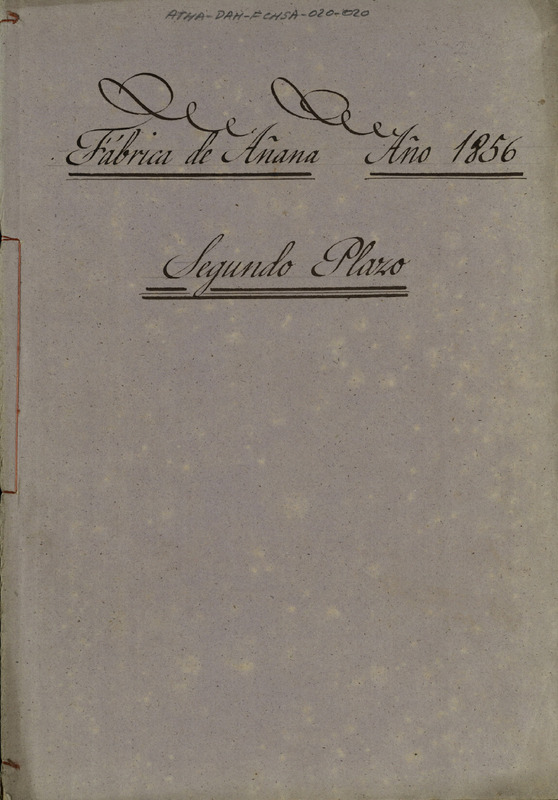 ATHA-DAH-FCHSA-020-020
Fábrica de Añana Año 1856
Segundo Plazo